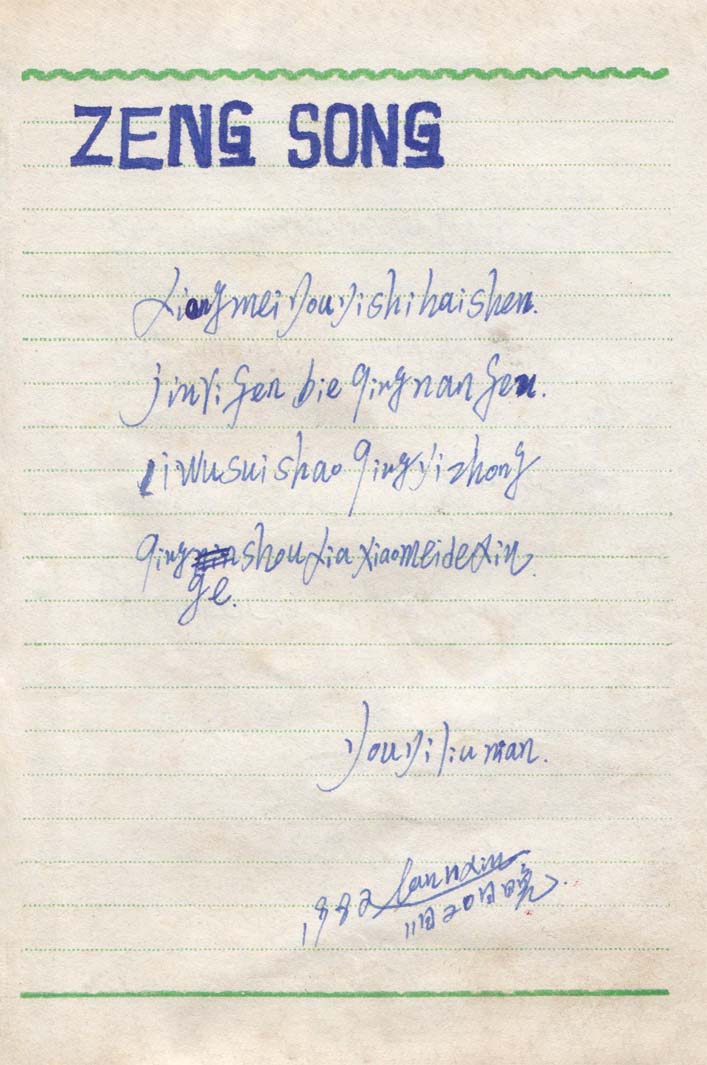 ZENG SONG
Xiongmei youyi shi hai shen.
jinyi fen bie qing nan fen.
Li wu sui shao qing yi zhong
qing shou xia xiaomei de xin.
ge.
youyi liu nian.
1982
11月20日晚